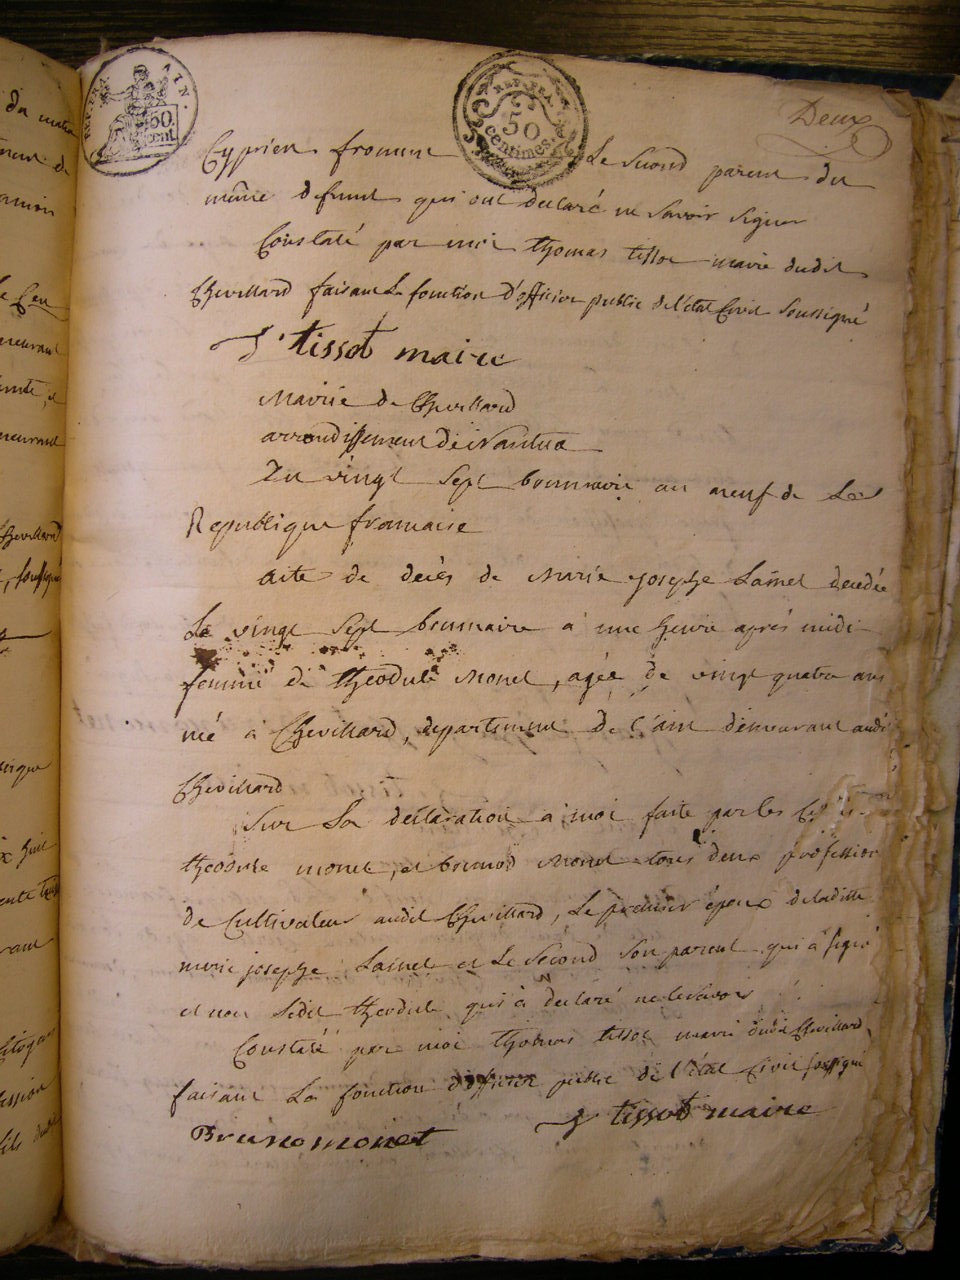 REP. FRA.
AIN.
50.
cent.
REP. FRA.
50
centimes.
Deux
Cyprien fromme Le second parent du
même defunt qui ont declaré ne savoir signer
Constaté par moi thomas tissot maire dudit
Chevillard faisant La fonction d'officier public de l'état Civil soussigné
T. tissot maire
Mairie de Chevillard
arrondissement de Nantua
Du vingt sept brumaire an neuf de La
Republique francaise
acte de decès de Marie josephe Lainel decedée
Le vingt sept brumaire à une heure après midi
femme de theodule Monet, agée de vingt quatre ans
née à Chevillard, departement de l'ain demeurant audi
Chevillard
sur La declaration a moi faite par les
theodule monet, et Monet tous deux profession
de Cultivateur audit Chevillard, Le premier époux de laditte
marie josephe Lainel et Le second son parent qui à signé
et non ledit theodule qui à declaré ne le savoir
Constaté par moi thomas tissot maire dudi Chevillard
faisant La fonction d'officier public de l'état Civil soussigné
T tissot maire
Bruno monet